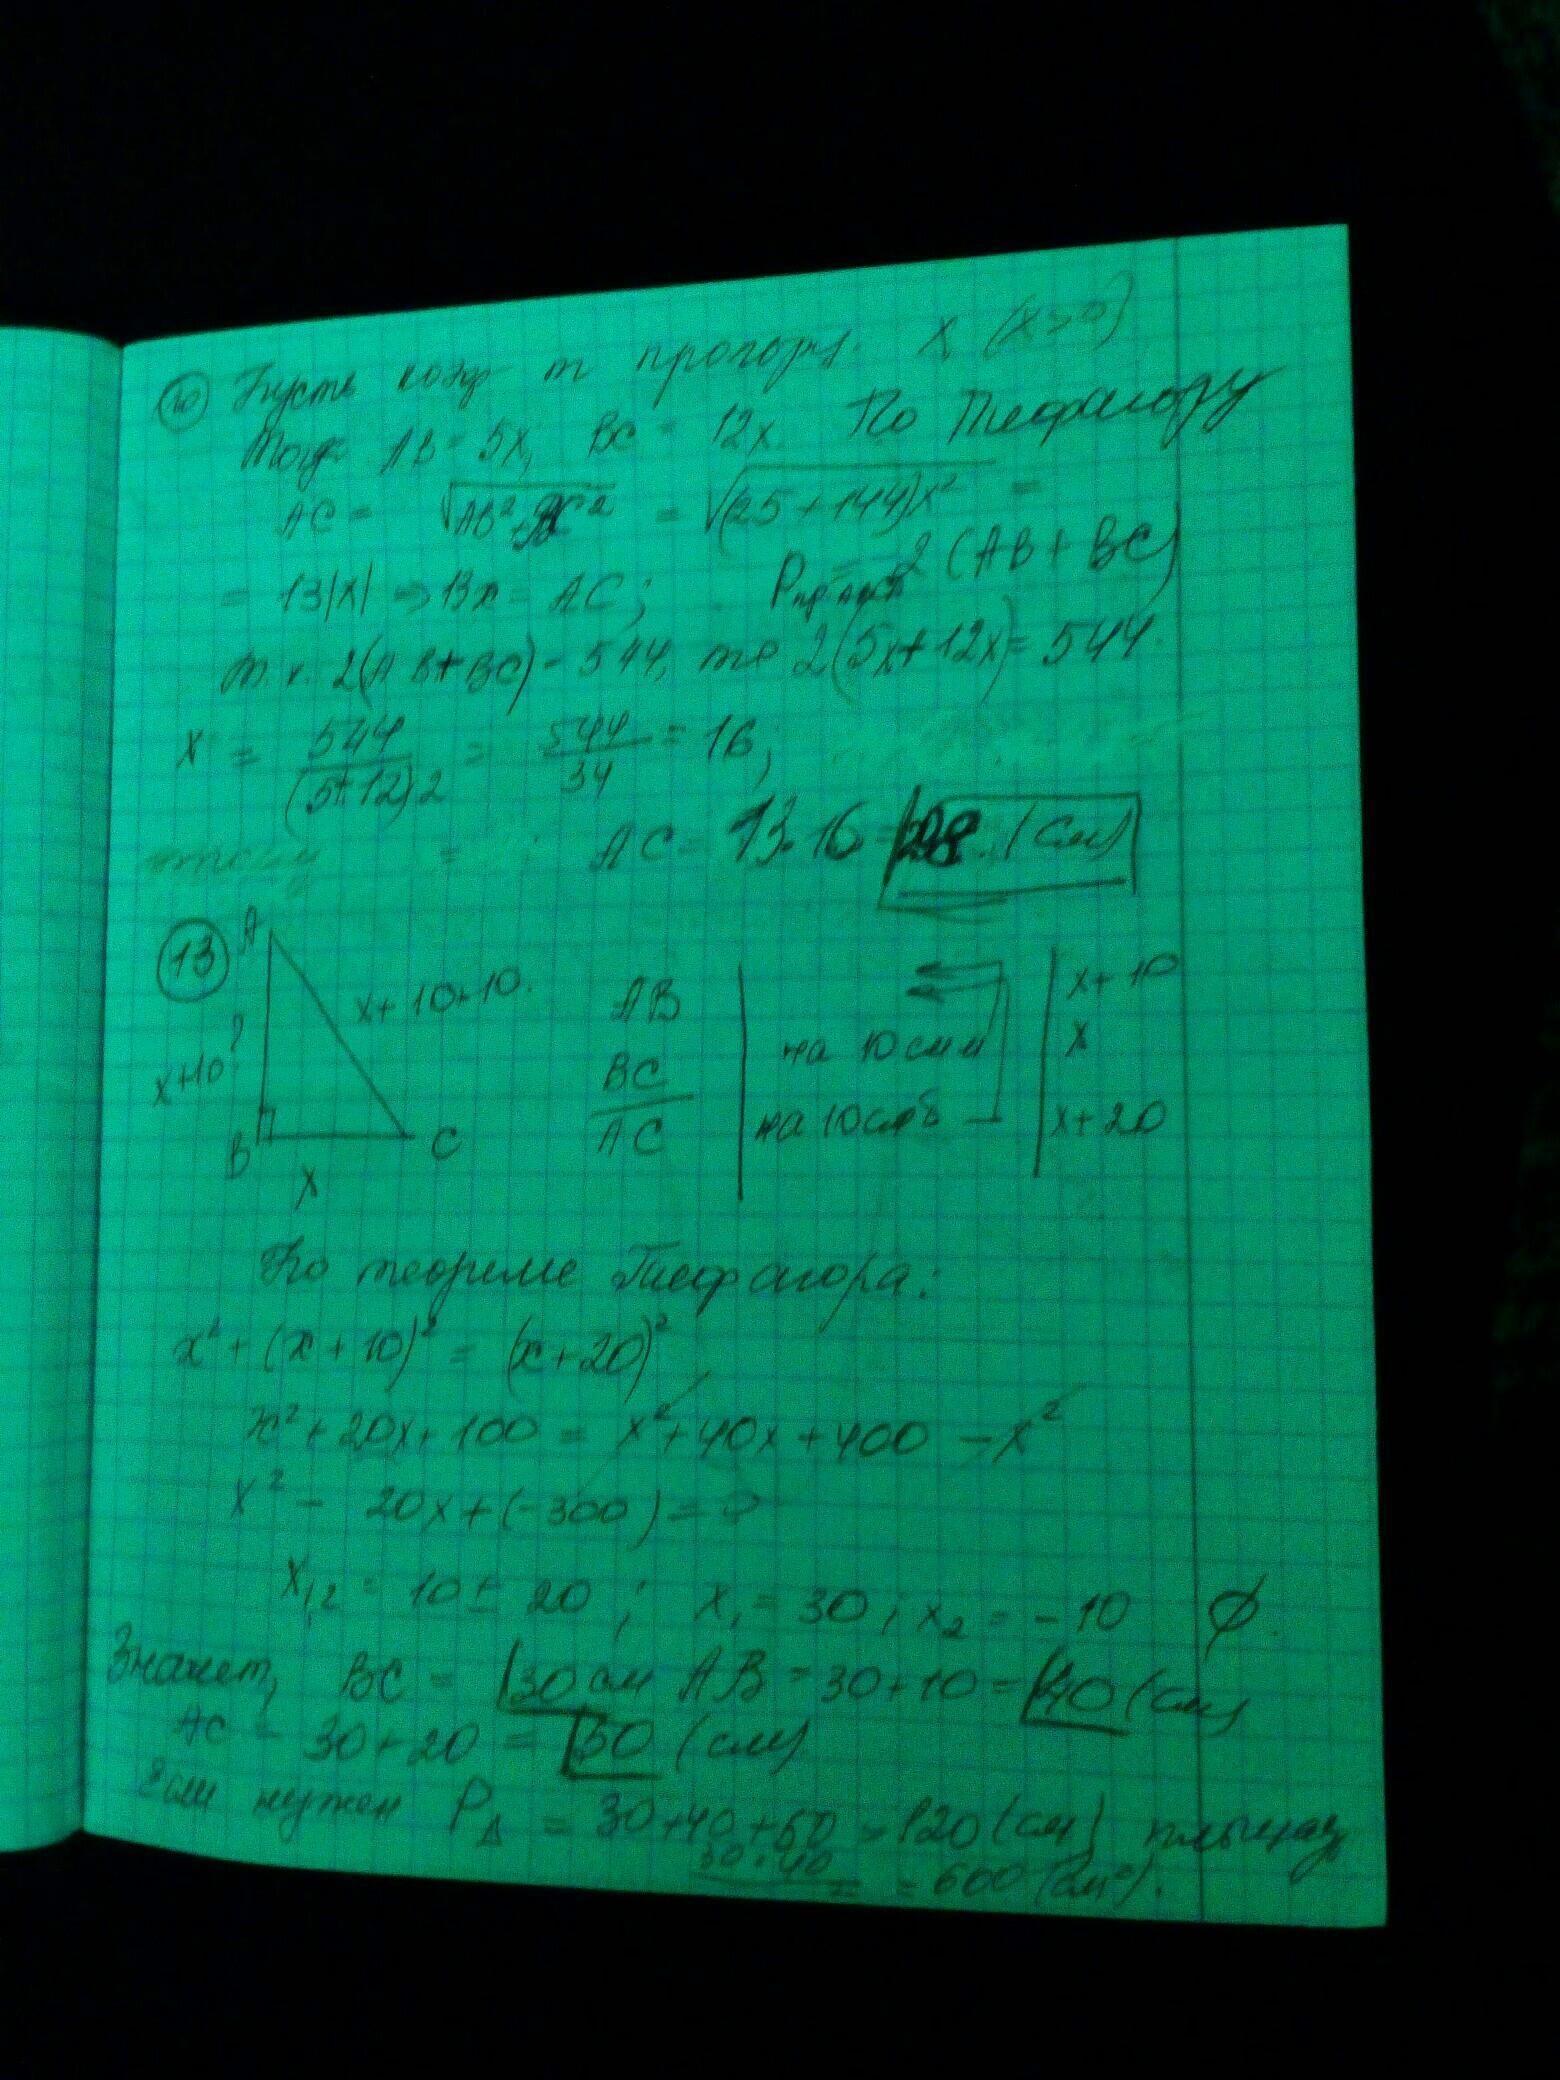 10 Пусть коэф т пропорц. x (x>0)
Тогда AB = 5x, BC = 12x. По Пифагору
AC = √(AB² + BC²) = √((25+144)x²) =
= 13|x| ⇒ 13x = AC; P = 2(AB+BC)
т.к. 2(AB+BC) = 544, то 2(5x+12x) = 544.
x = 544/((5+12)2) = 544/34 = 16;
AC = 13·16 = 208 (см)
13 A
x+10+10. AB x+10
? на 10 см м x
x+10 BC
AC на 10 см б x+20
B C
x
По теореме Пифагора:
x² + (x+10)² = (x+20)²
x² + 20x + 100 = x² + 40x + 400 - x²
x² - 20x + (-300) = 0
x1,2 = 10 ± 20; x₁ = 30; x₂ = -10 ∅.
Значит, BC = 30 см AB = 30+10 = 40 (см)
AC = 30+20 = 50 (см)
Если нужен P△ = 30+40+50 = 120 (см)
30·40/2 = 600 (см²).